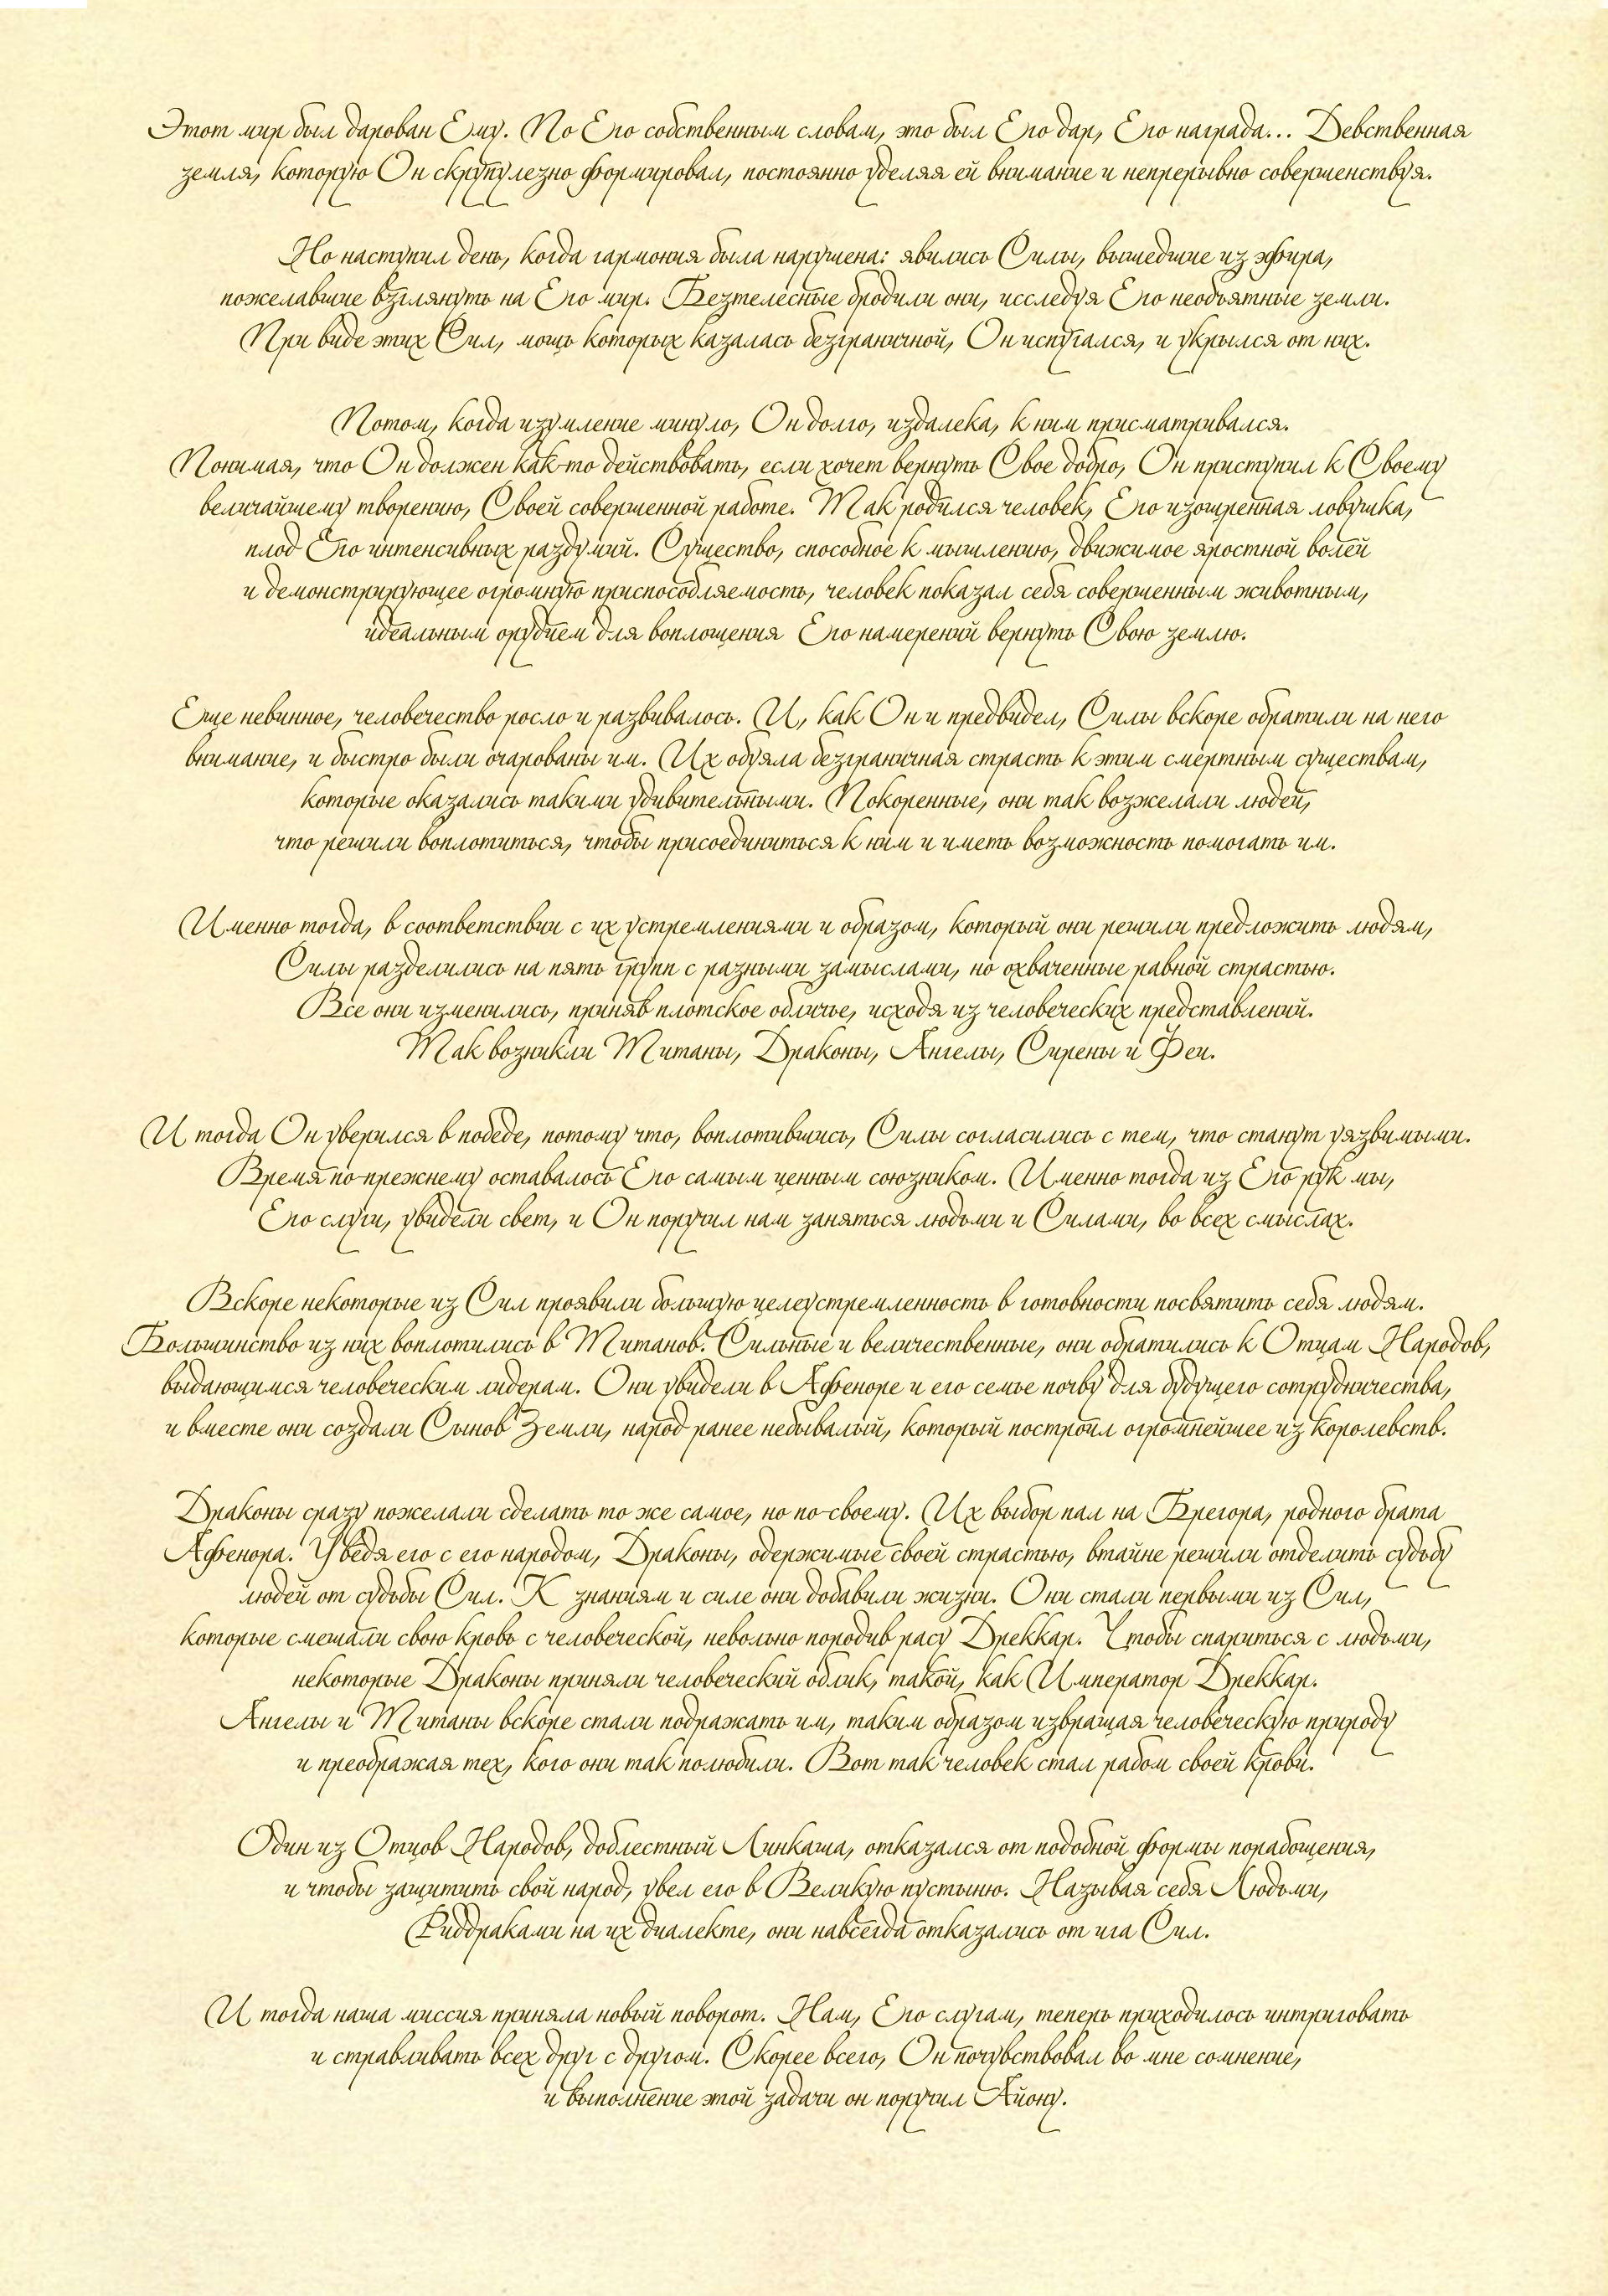 Этот мир был дарован Ему. По Его собственным словам, это был Его дар, Его награда... Девственная
земля, которую Он скрупулезно формировал, постоянно уделяя ей внимание и непрерывно совершенствуя.
Но наступил день, когда гармония была нарушена: явились Силы, вышедшие из эфира,
пожелавшие взглянуть на Его мир. Безтелесные бродили они, исследуя Его необъятные земли.
При виде этих Сил, мощь которых казалась безграничной, Он испугался, и укрылся от них.
Потом, когда изумление минуло, Он долго, издалека, к ним присматривался.
Понимая, что Он должен как-то действовать, если хочет вернуть Свое добро, Он приступил к Своему
величайшему творению, Своей совершенной работе. Так родился человек, Его изощренная ловушка,
плод Его интенсивных раздумий. Существо, способное к мышлению, движимое яростной волей
и демонстрирующее огромную приспособляемость, человек показал себя совершенным животным,
идеальным орудием для воплощения Его намерений вернуть Свою землю.
Еще невинное, человечество росло и развивалось. И, как Он и предвидел, Силы вскоре обратили на него
внимание, и быстро были очарованы им. Их обуяла безграничная страсть к этим смертным существам,
которые оказались такими удивительными. Покоренные, они так возжелали людей,
что решили воплотиться, чтобы присоединиться к ним и иметь возможность помогать им.
Именно тогда, в соответствии с их устремлениями и образом, который они решили предложить людям,
Силы разделились на пять групп с разными замыслами, но охваченные равной страстью.
Все они изменились, приняв плотское обличье, исходя из человеческих представлений.
Так возникли Титаны, Драконы, Ангелы, Сирены и Феи.
И тогда Он уверился в победе, потому что, воплотившись, Силы согласились с тем, что станут уязвимыми.
Время по-прежнему оставалось Его самым ценным союзником. Именно тогда из Его рук мы,
Его слуги, увидели свет, и Он поручил нам заняться людьми и Силами, во всех смыслах.
Вскоре некоторые из Сил проявили большую целеустремленность в готовности посвятить себя людям.
Большинство из них воплотились в Титанов. Сильные и величественные, они обратились к Отцам Народов,
выдающимся человеческим лидерам. Они увидели в Афеноре и его семье почву для будущего сотрудничества,
и вместе они создали Сынов Земли, народ ранее небывалый, который построил огромнейшее из королевств.
Драконы сразу пожелали сделать то же самое, но по-своему. Их выбор пал на Брегора, родного брата
Афенора. Уведя его с его народом, Драконы, одержимые своей страстью, втайне решили отделить судьбу
людей от судьбы Сил. К знаниям и силе они добавили жизни. Они стали первыми из Сил,
которые смешали свою кровь с человеческой, невольно породив расу Дреккар. Чтобы спариться с людьми,
некоторые Драконы приняли человеческий облик, такой, как Император Дреккар.
Ангелы и Титаны вскоре стали подражать им, таким образом извращая человеческую природу
и преображая тех, кого они так полюбили. Вот так человек стал рабом своей крови.
Один из Отцов Народов, доблестный Линкаша, отказался от подобной формы порабощения,
и чтобы защитить свой народ, увел его в Великую пустыню. Называя себя Людьми,
Риддраками на их диалекте, они навсегда отказались от ига Сил.
И тогда наша миссия приняла новый поворот. Нам, Его слугам, теперь приходилось интриговать
и стравливать всех друг с другом. Скорее всего, Он почувствовал во мне сомнение,
и выполнение этой задачи он поручил Айону.